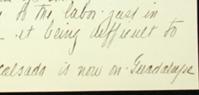 to the labor-yard in
it being difficult to
calsada is now on Guadalupe